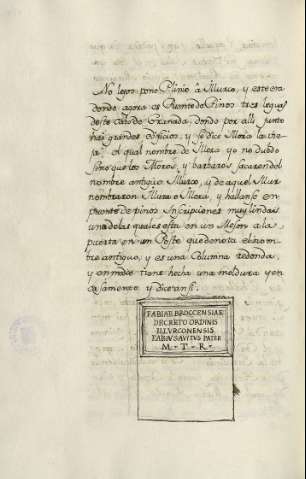 No lejos pone Plinio â Illurco, y este era
donde agora es Puente de Pinos tres leguas
deste cabo de Granada, donde por alli junto
hai grandes edificios, y se dice Illora la vie-
ja: el qual nombre de Illora yo no dudo
sino que los Moros, y barbaros sacaron del
nombre antiguo Illurco, y de aquel Illur
nombraron Illura o Illora, y hallanse en
puente de pinos Inscripciones muy lindas
una de las quales esta en un Meson a la
puerta en un Poste que denota el nom-
bre antiguo, y es una Columna redonda,
y en medio tiene hecha una moldura y en-
casamento y dice ansi:
FABIAE BROCCENSIAE
DECRETO ORDINIS
ILLVRCONENSIS
FABIVS AVITVS PATER
M - T - R -